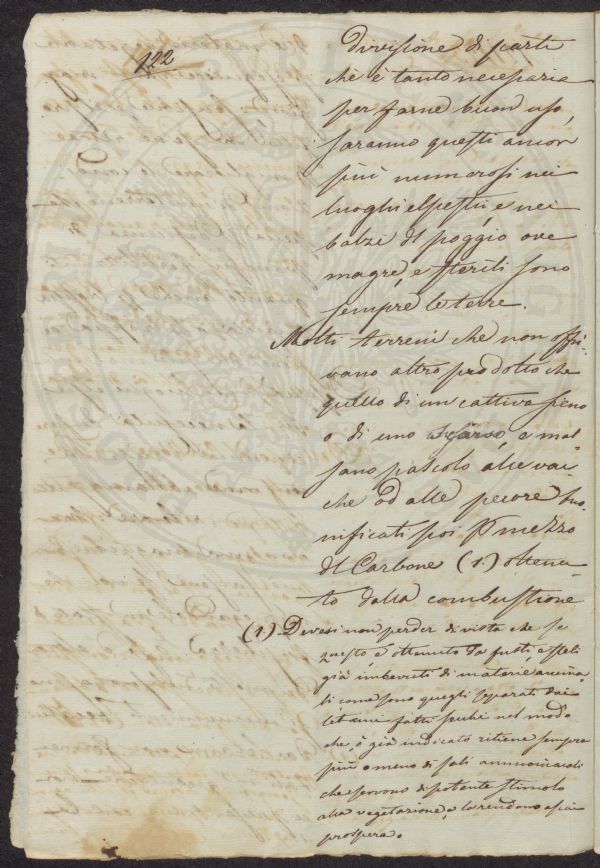 122
divisione di parti
che è tanto necessaria
per farne buon uso,
saranno questi ancor
più numerosi nei
luoghi alpestri, e nei
balzi di poggio ove
magre, e sterili sono
sempre le terre.
Molti terreni che non offri-
vano altro prodotto che
quello di un cattivo fieno
o di uno scarso, e mal
sano pascolo alle vac-
che od alle pecore bo-
nificati poi p mezzo
del Carbone (1.) ottenu-
to dalla combustione
(1.) Devesi non perder di vista che se
questo è ottenuto da fusti, e steli
già imbevuti di materie anima-
li come sono quegli separati dai
letami fatti subi nel modo
che, è già indicato ritiene sempre
più o meno di sali ammoniacali
che servono di potente stimolo
alla vegetazione, e la rendono assai
prospera.